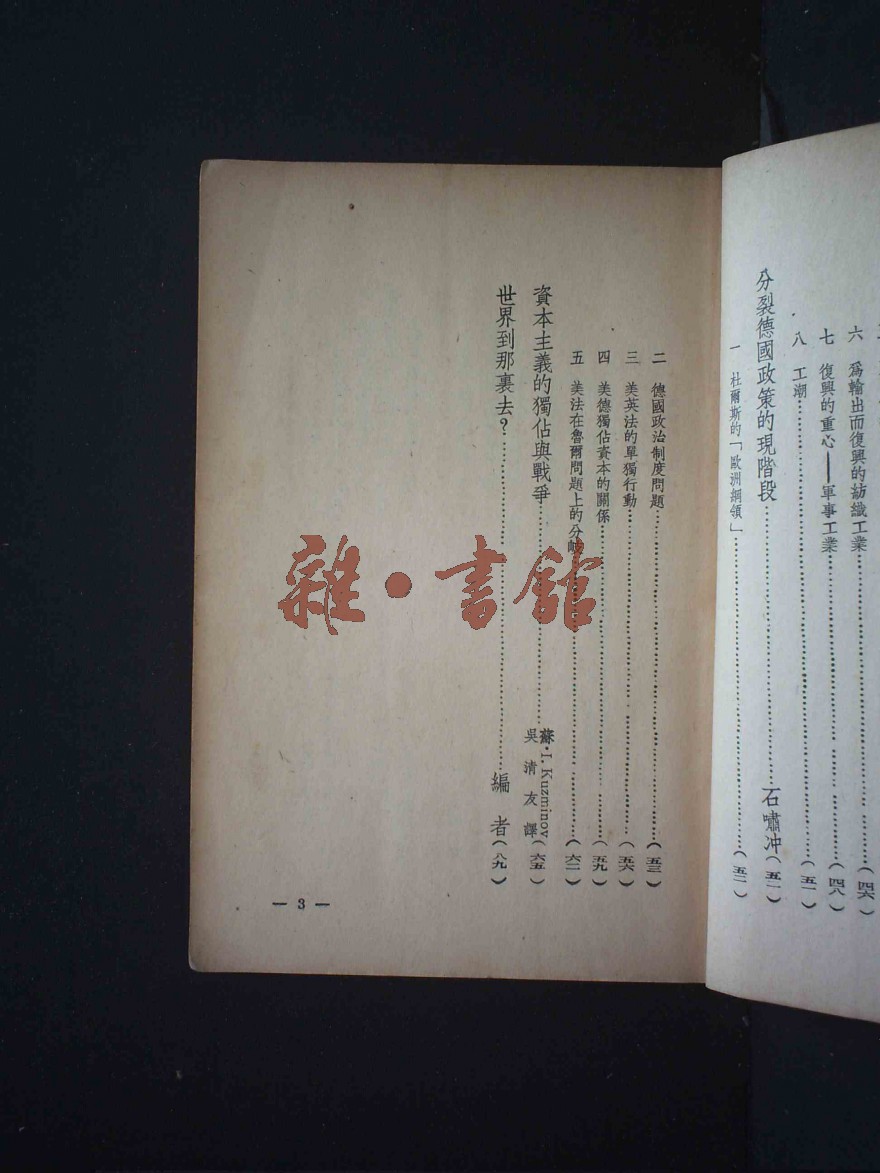 六　爲輸出而復興的紡織工業……（四六）
七　復興的重心——軍事工業……（四八）
八　工潮……（五一）
分裂德國政策的現階段……石嘯冲（五一）
一　杜爾斯的「歐洲綱領」……（五二）
二　德國政治制度問題……（五三）
三　美英法的單獨行動……（五六）
四　美德獨佔資本的關係……（五九）
五　美法在魯爾問題上的分岐……（六二）
資本主義的獨佔與戰爭……蘇·I. Kuzminov 吳清友譯（六五）
世界到那裏去？……編者（八九）
— 3 —
雜·書館